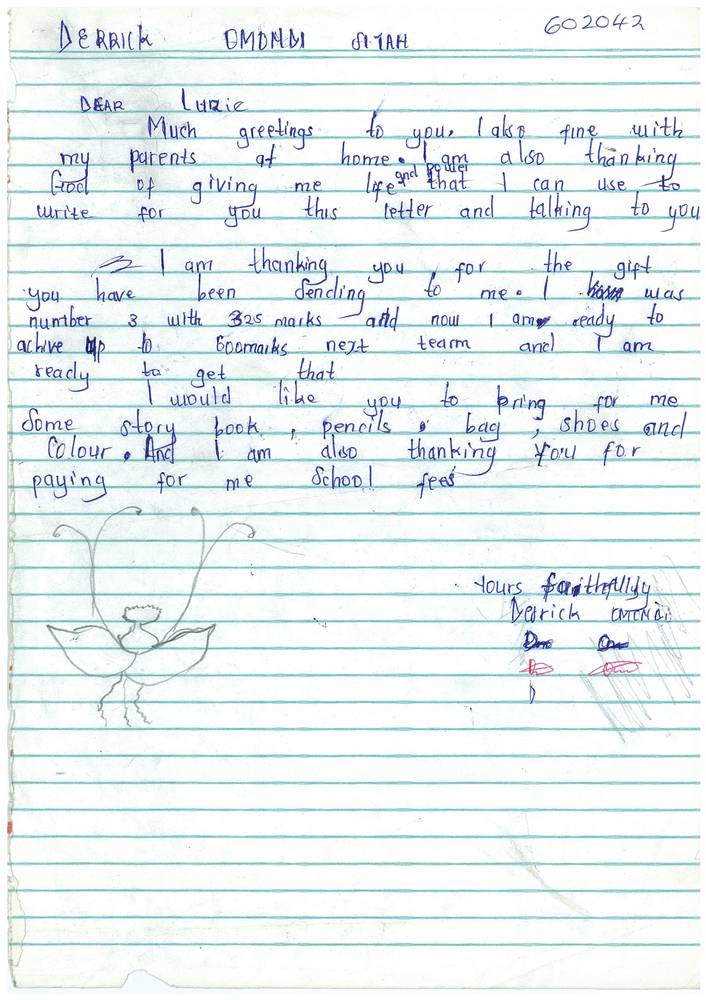 602042
DERRICK OMONDI SITAH
DEAR Lurie
Much greetings to you. I also fine with
my parents at home. I am also thanking
God of giving me life and power that I can use to
write for you this letter and talking to you
I am thanking you for the gift
you have been sending to me. I was
number 3 with 325 marks and now I am ready to
achive up to 600marks next team and I am
ready to get that
I would like you to bring for me
Some story book, pencils, bag, shoes and
Colour. And I am also thanking you for
paying for me School fees
Yours faithfully
Derrick OMONDI
D